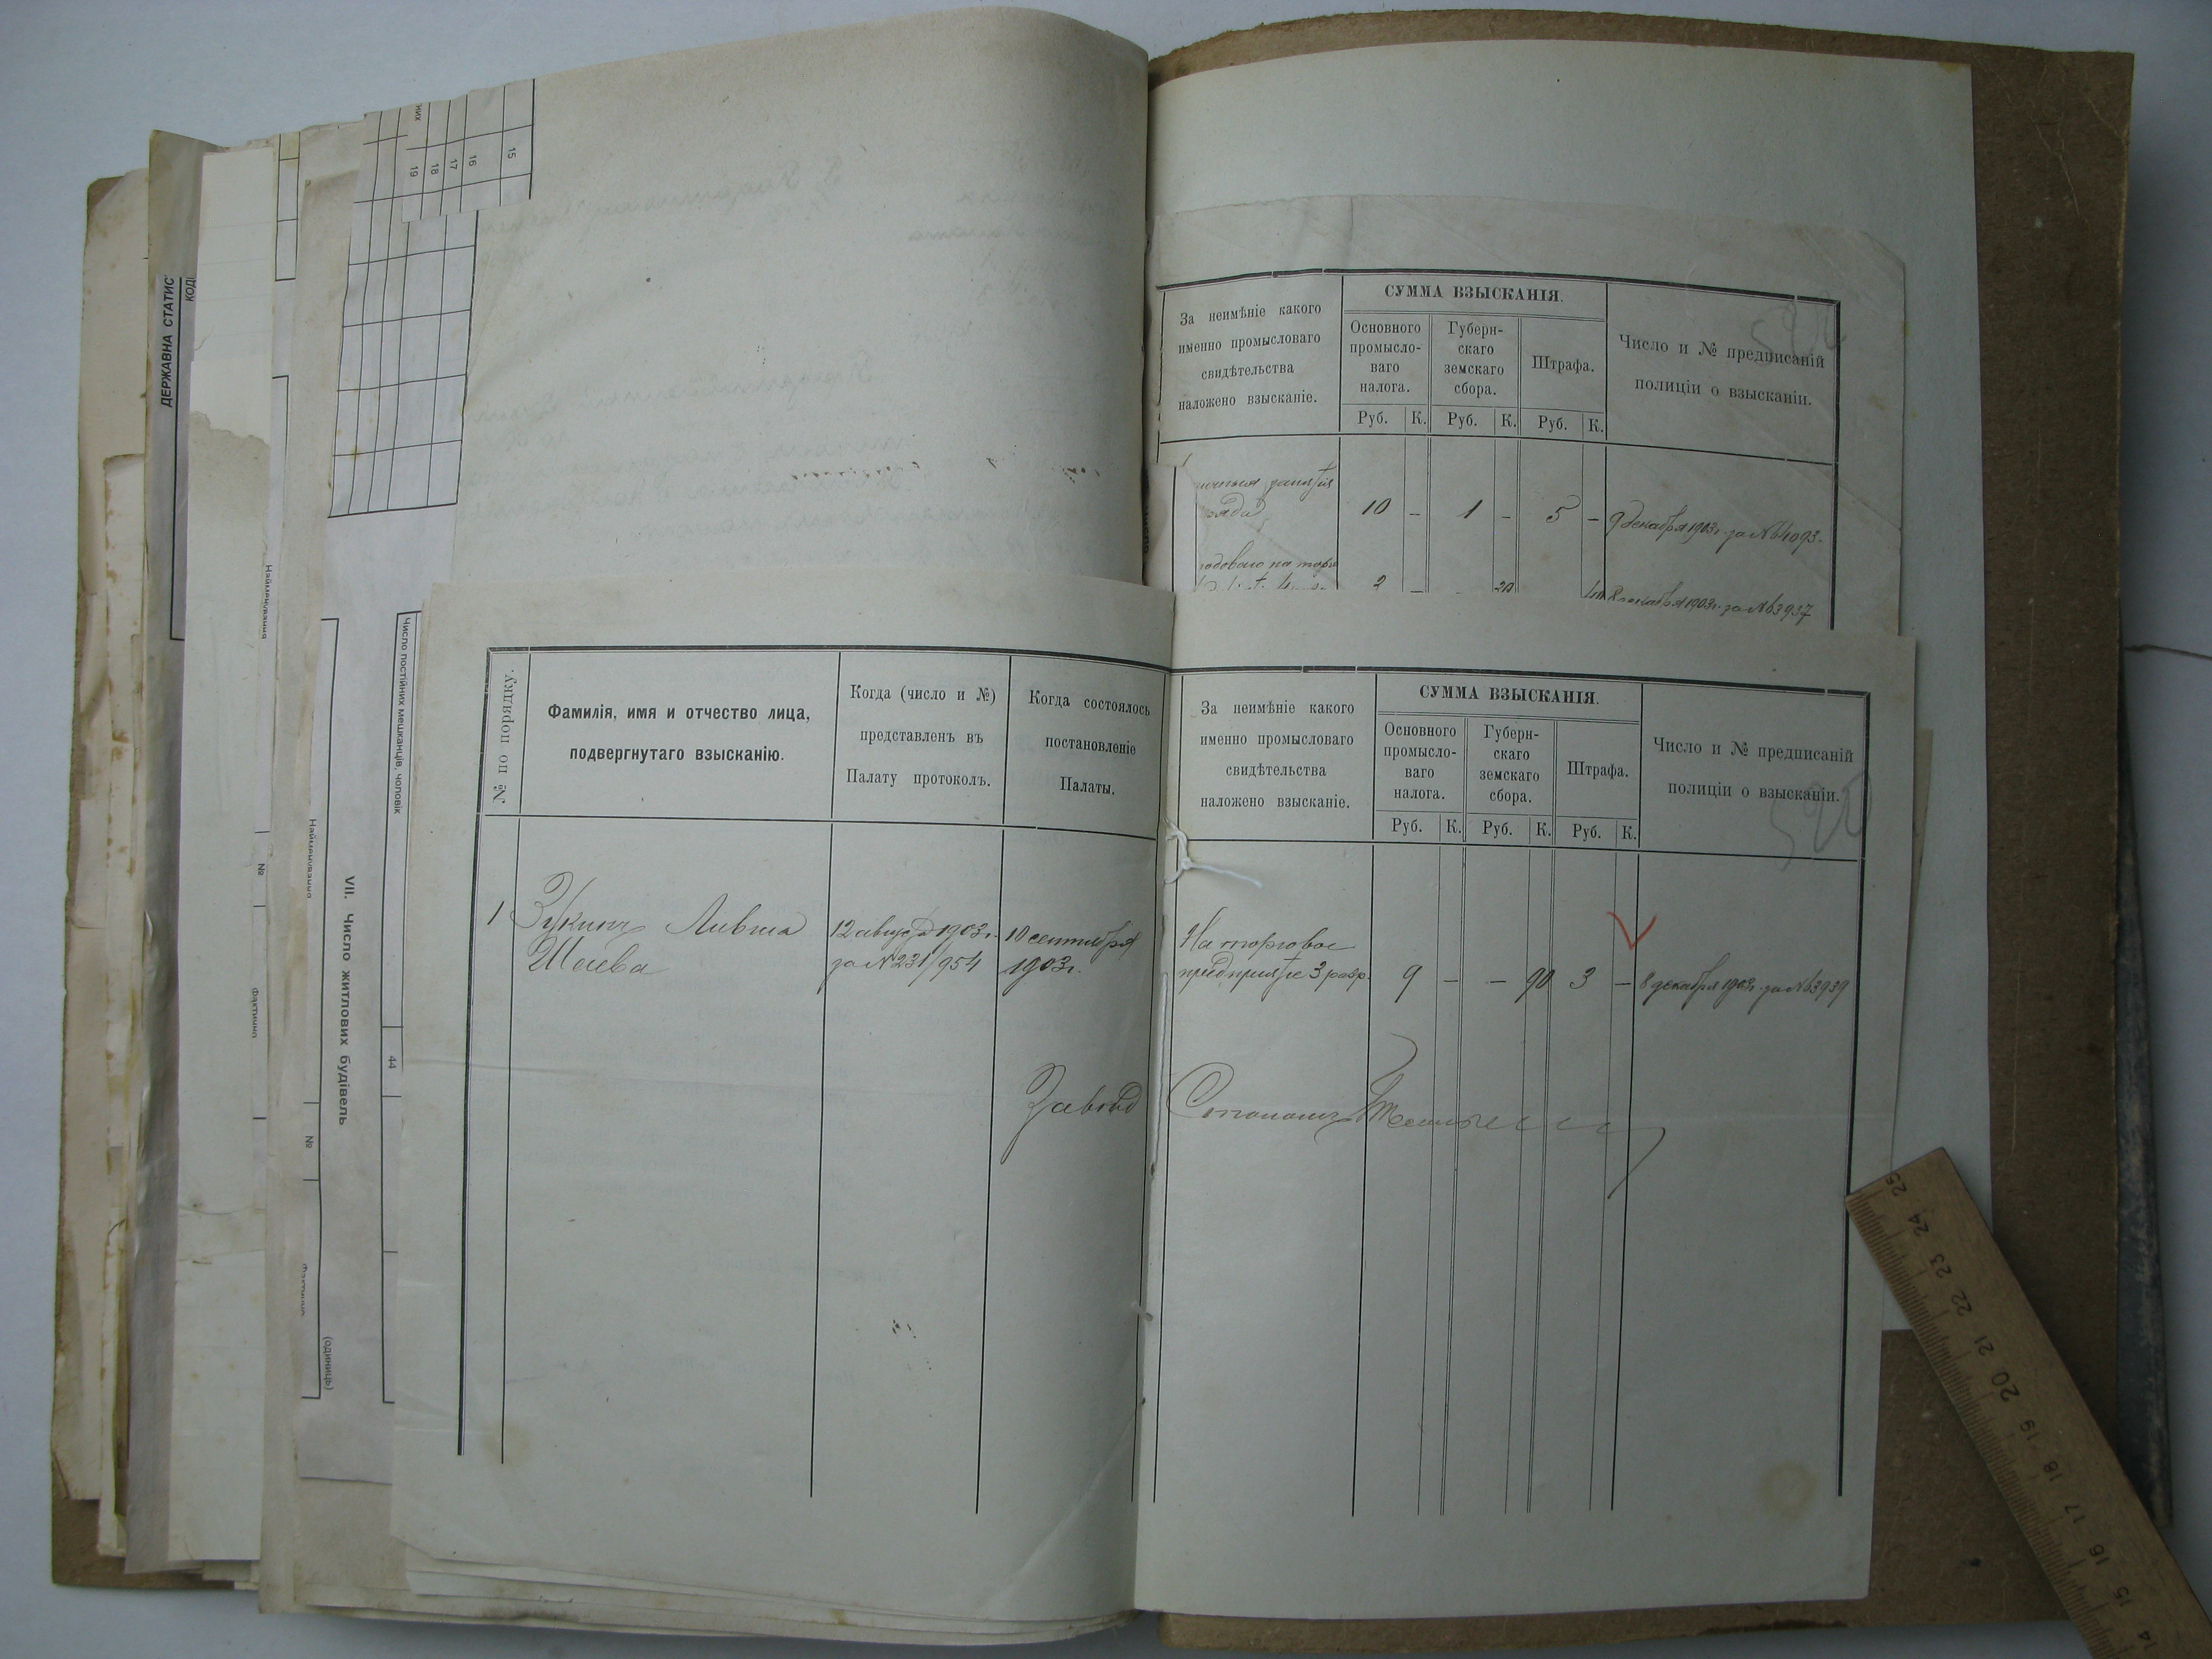 ДЕРЖАВНА СТАТИС
КОДИ
них
15
16
17
18
19
Найменування
№
фактично
Найменування
№
VII. Число житлових будівель
(одиниць)
Число постійних мешканців, чоловік
44
За неимѣніе какого
именно промысловаго
свидѣтельства
наложено взысканіе.
СУММА ВЗЫСКАНІЯ.
Основного
промысло-
ваго
налога.
Губерн-
скаго
земскаго
сбора.
Штрафа.
Руб. К. Руб. К. Руб. К.
Число и № предписаній
полиціи о взысканіи.
занятія
10 – 1 – 5 – 9 декабря 1903г. за № 4093.
2 – – 20 40 8 декабря 1903г. за № 3937
№ по порядку.
Фамилія, имя и отчество лица,
подвергнутаго взысканію.
Когда (число и №)
представленъ въ
Палату протоколъ.
Когда состоялось
постановленіе
Палаты.
За неимѣніе какого
именно промысловаго
свидѣтельства
наложено взысканіе.
СУММА ВЗЫСКАНІЯ.
Основного
промысло-
ваго
налога.
Губерн-
скаго
земскаго
сбора.
Штрафа.
Руб. К. Руб. К. Руб. К.
Число и № предписаній
полиціи о взысканіи.
1 Зукинъ Ливша
Шаева
12 август. 1903г.
за № 231/954
10 сентября
1903г.
На торговое
предпріятіе 3 разр.
9 – – 90 3 – 8 декабря 1903г. за № 3939
Завѣд Столомъ
25 24 23 22 21 20 19 18 17 16 15 14